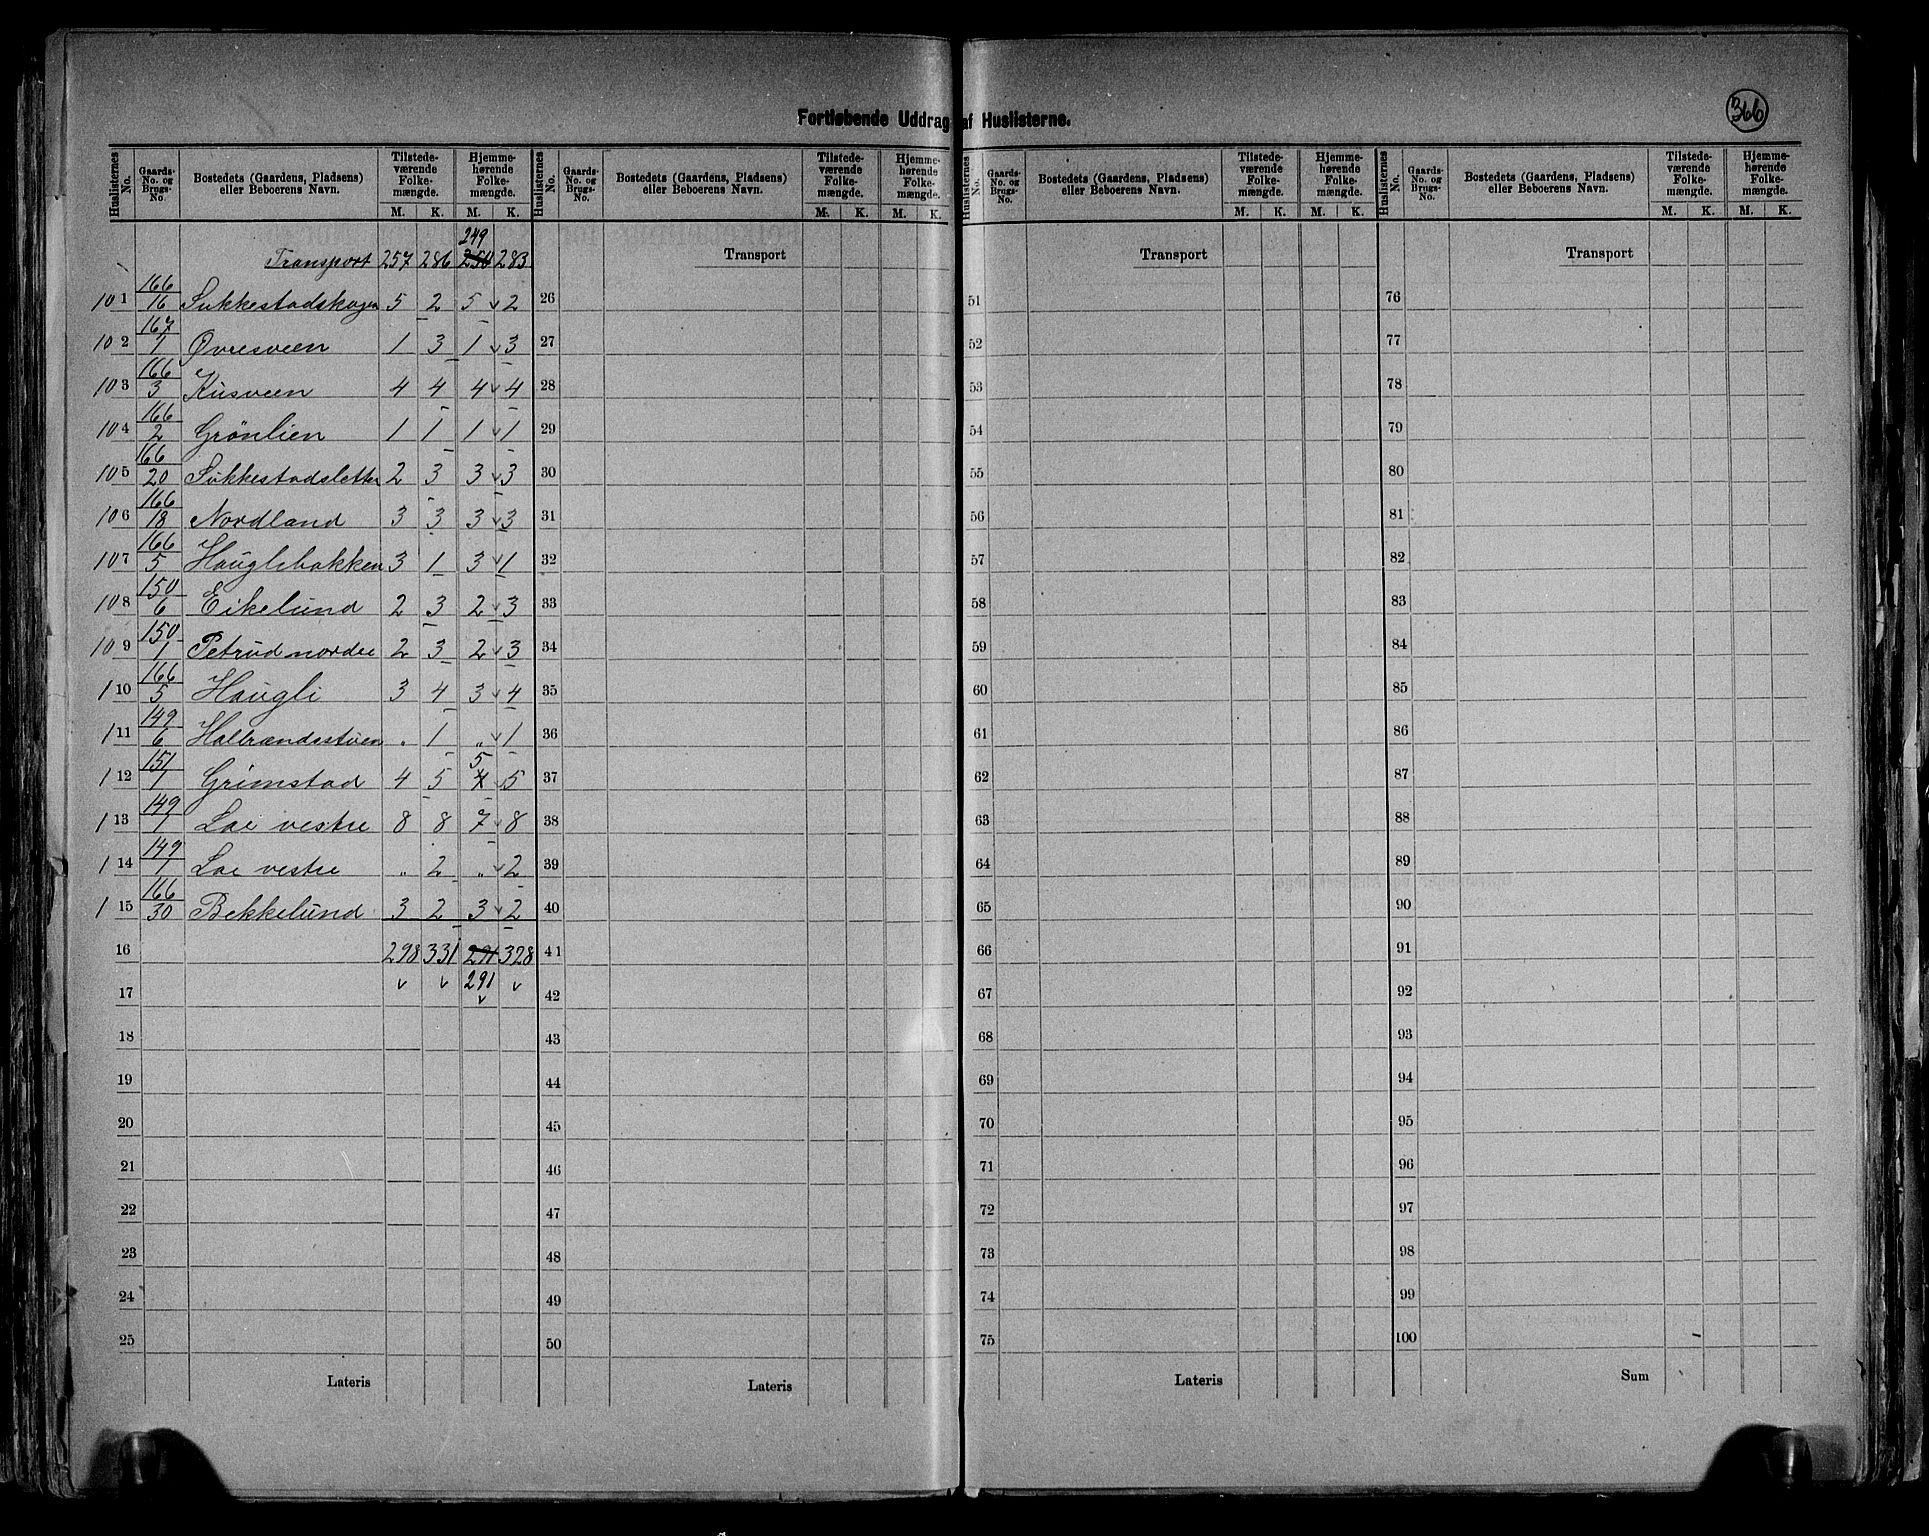 Fortløbende Uddrag af Huslisterne.
366
Huslisternes No. | Gaards-No. og Brugs-No. | Bostedets (Gaardens, Pladsens) eller Beboerens Navn. | Tilstedeværende Folkemængde. M. K. | Hjemmehørende Folkemængde. M. K.
Huslisternes No. | Gaards-No. og Brugs-No. | Bostedets (Gaardens, Pladsens) eller Beboerens Navn. | Tilstedeværende Folkemængde. M. K. | Hjemmehørende Folkemængde. M. K.
Huslisternes No. | Gaards-No. og Brugs-No. | Bostedets (Gaardens, Pladsens) eller Beboerens Navn. | Tilstedeværende Folkemængde. M. K. | Hjemmehørende Folkemængde. M. K.
Huslisternes No. | Gaards-No. og Brugs-No. | Bostedets (Gaardens, Pladsens) eller Beboerens Navn. | Tilstedeværende Folkemængde. M. K. | Hjemmehørende Folkemængde. M. K.
249
Transport 257 286 250 283
101 166/16 Sukkestadskogen 5 2 5 v 2
102 167/1 Øvresveen 1 3 1 v 3
103 166/3 Kusveen 4 4 4 v 4
104 166/2 Grønlien 1 1 1 v 1
105 166/20 Sukkestadsletten 2 3 3 v 3
106 166/18 Nordland 3 3 3 v 3
107 166/5 Hauglibakken 3 1 3 v 1
108 150/6 Eikelund 2 3 2 v 3
109 150/1 Petrud nordre 2 3 2 v 3
110 166/5 Haugli 3 4 3 v 4
111 149/6 Halbrændsstuen " 1 " v 1
5
112 151/1 Grimstad 4 5 4 v 5
113 149/1 Loe vestre 8 8 7 v 8
114 149/1 Loe vestre " 2 " v 2
115 166/30 Bekkelund 3 2 3 v 2
16 298 331 291 328
17 v v 291 v
v
18
19
20
21
22
23
24
25
Lateris
Transport
26
27
28
29
30
31
32
33
34
35
36
37
38
39
40
41
42
43
44
45
46
47
48
49
50
Lateris
Transport
51
52
53
54
55
56
57
58
59
60
61
62
63
64
65
66
67
68
69
70
71
72
73
74
75
Lateris
Transport
76
77
78
79
80
81
82
83
84
85
86
87
88
89
90
91
92
93
94
95
96
97
98
99
100
Sum